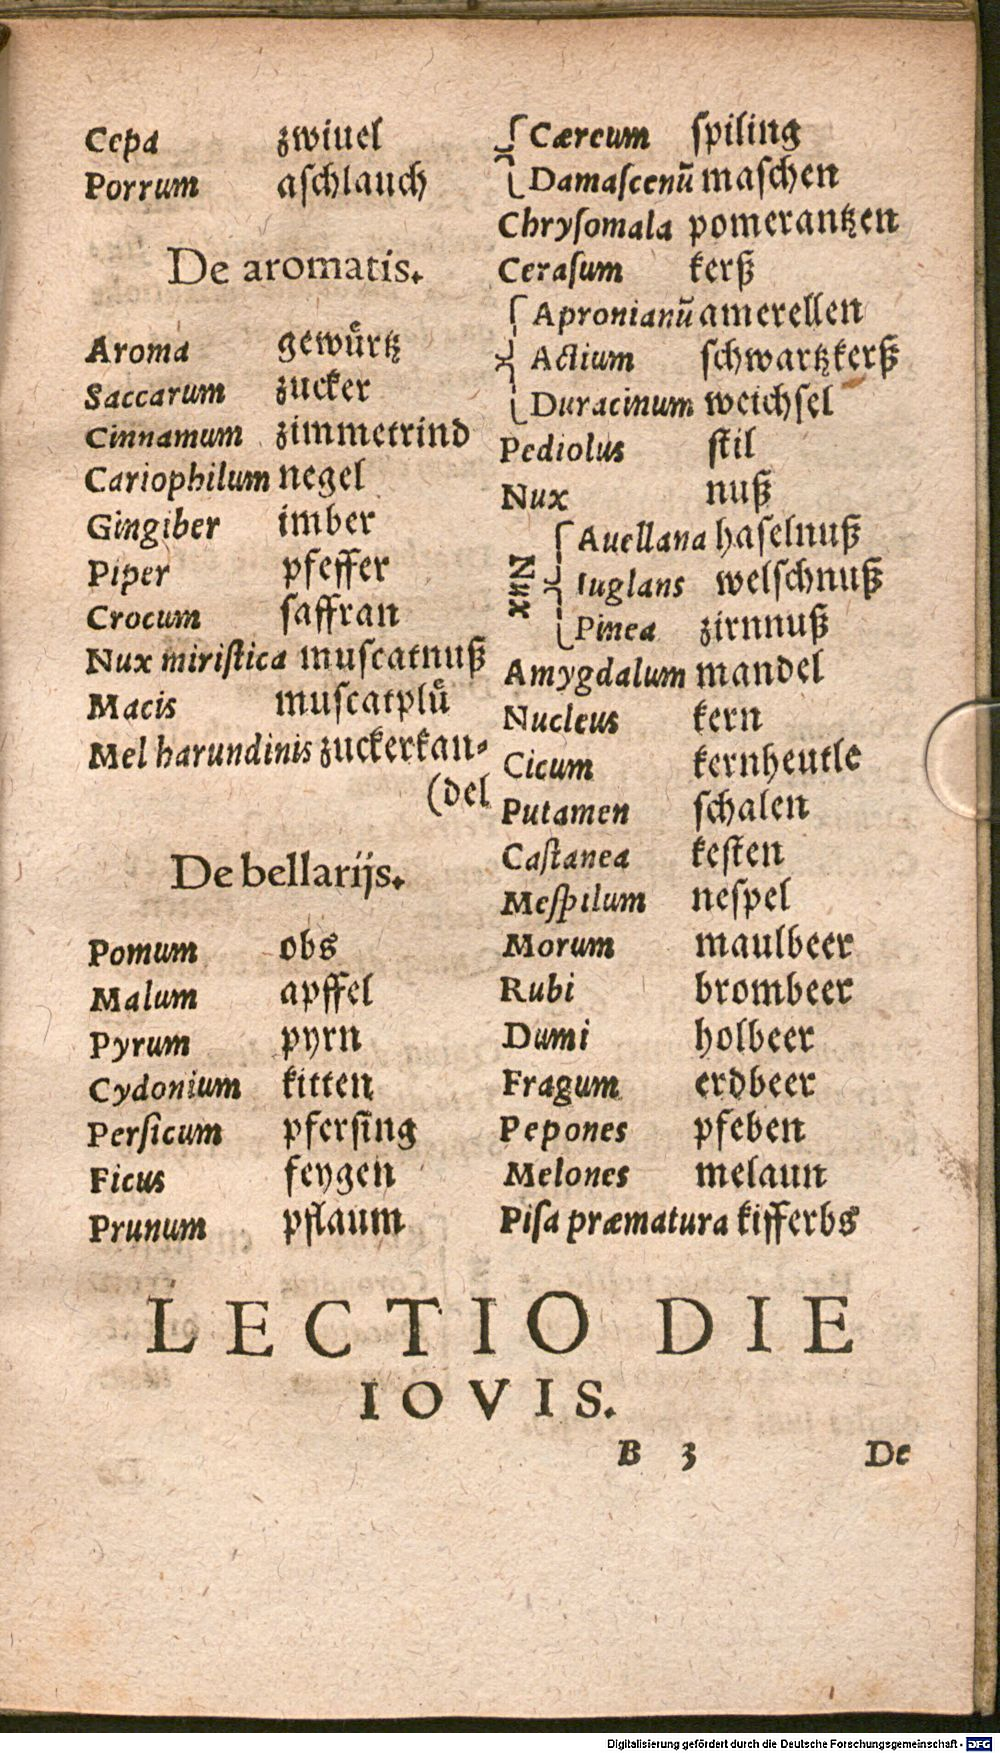 Cepa zwiuel
Porrum aſchlauch
De aromatis.
Aroma gewuͤrtz
Saccarum zucker
Cinnamum zimmetrind
Cariophilum negel
Gingiber imber
Piper pfeffer
Crocum ſaffran
Nux miriſtica muſcatnuß
Macis muſcatpluͤ
Mel harundinis zuckerkan⸗
(del
De bellarijs.
Pomum obs
Malum apffel
Pyrum pyrn
Cydonium kitten
Perſicum pferſing
Ficus feygen
Prunum pflaum
Cæreum ſpiling
Damaſcenũ maſchen
Chryſomala pomerantzen
Ceraſum kerß
Apronianũ amerellen
Actium ſchwartzkerß
Duracinum weichſel
Pediolus ſtil
Nux nuß
Nux
Auellana haſelnuß
Iuglans welſchnuß
Pinea zirnnuß
Amygdalum mandel
Nucleus kern
Cicum kernheutle
Putamen ſchalen
Caſtanea keſten
Meſpilum neſpel
Morum maulbeer
Rubi brombeer
Dumi holbeer
Fragum erdbeer
Pepones pfeben
Melones melaun
Piſa præmatura kifferbs
LECTIO DIE
IOVIS.
B 3 De
Digitalisierung gefördert durch die Deutsche Forschungsgemeinschaft - DFG